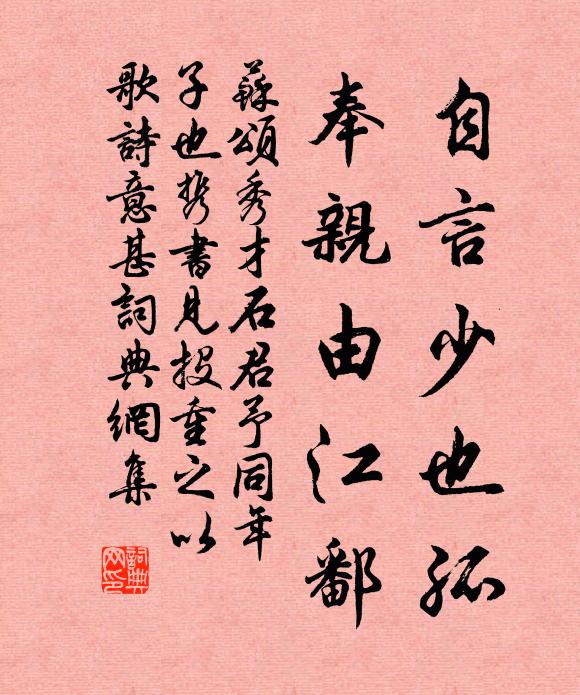 自言少也孤
奉親由江鄱
蘇頌秀才石君予同年
子也携書見投重之以
歌詩意甚詞典網集
詞典网印